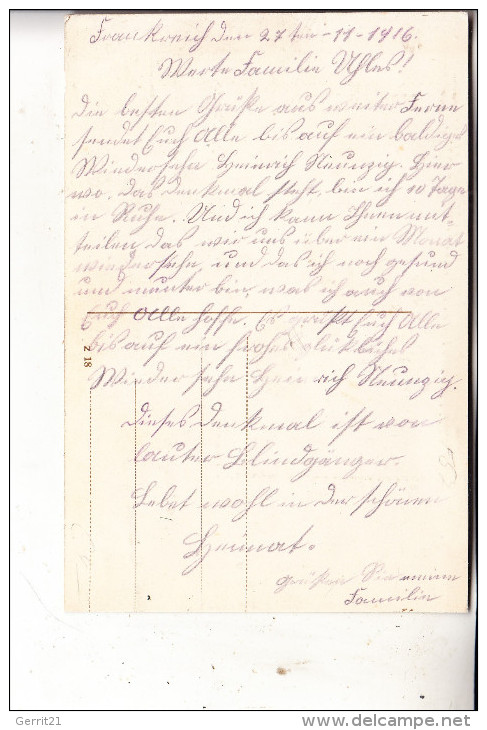 Frankreich den 27ten-11-1916.
Werte Familie Uhles!
Die besten Grüße aus weiter Ferne
sendet Euch Alle bis auf ein baldiges
Wiedersehn Heinrich Neunzig. Hier
wo. das Denkmal steht, bin ich 10 Tage
in Ruhe. Und ich kann Ihnen mit-
teilen das wir uns über ein Monat
wiedersehn, und das ich noch gesund
und munter bin, was ich auch von
Euch Alle hoffe. Es grüßt Euch Alle
bis auf ein frohes glückliches
Wiedersehn Heinrich Neunzig.
Dieses Denkmal ist von
lauter Blindgänger.
Lebet wohl in der schönen
Heimat.
Grüßen Sie meine
Familie
z 18
Gerrit21
www.delcampe.net